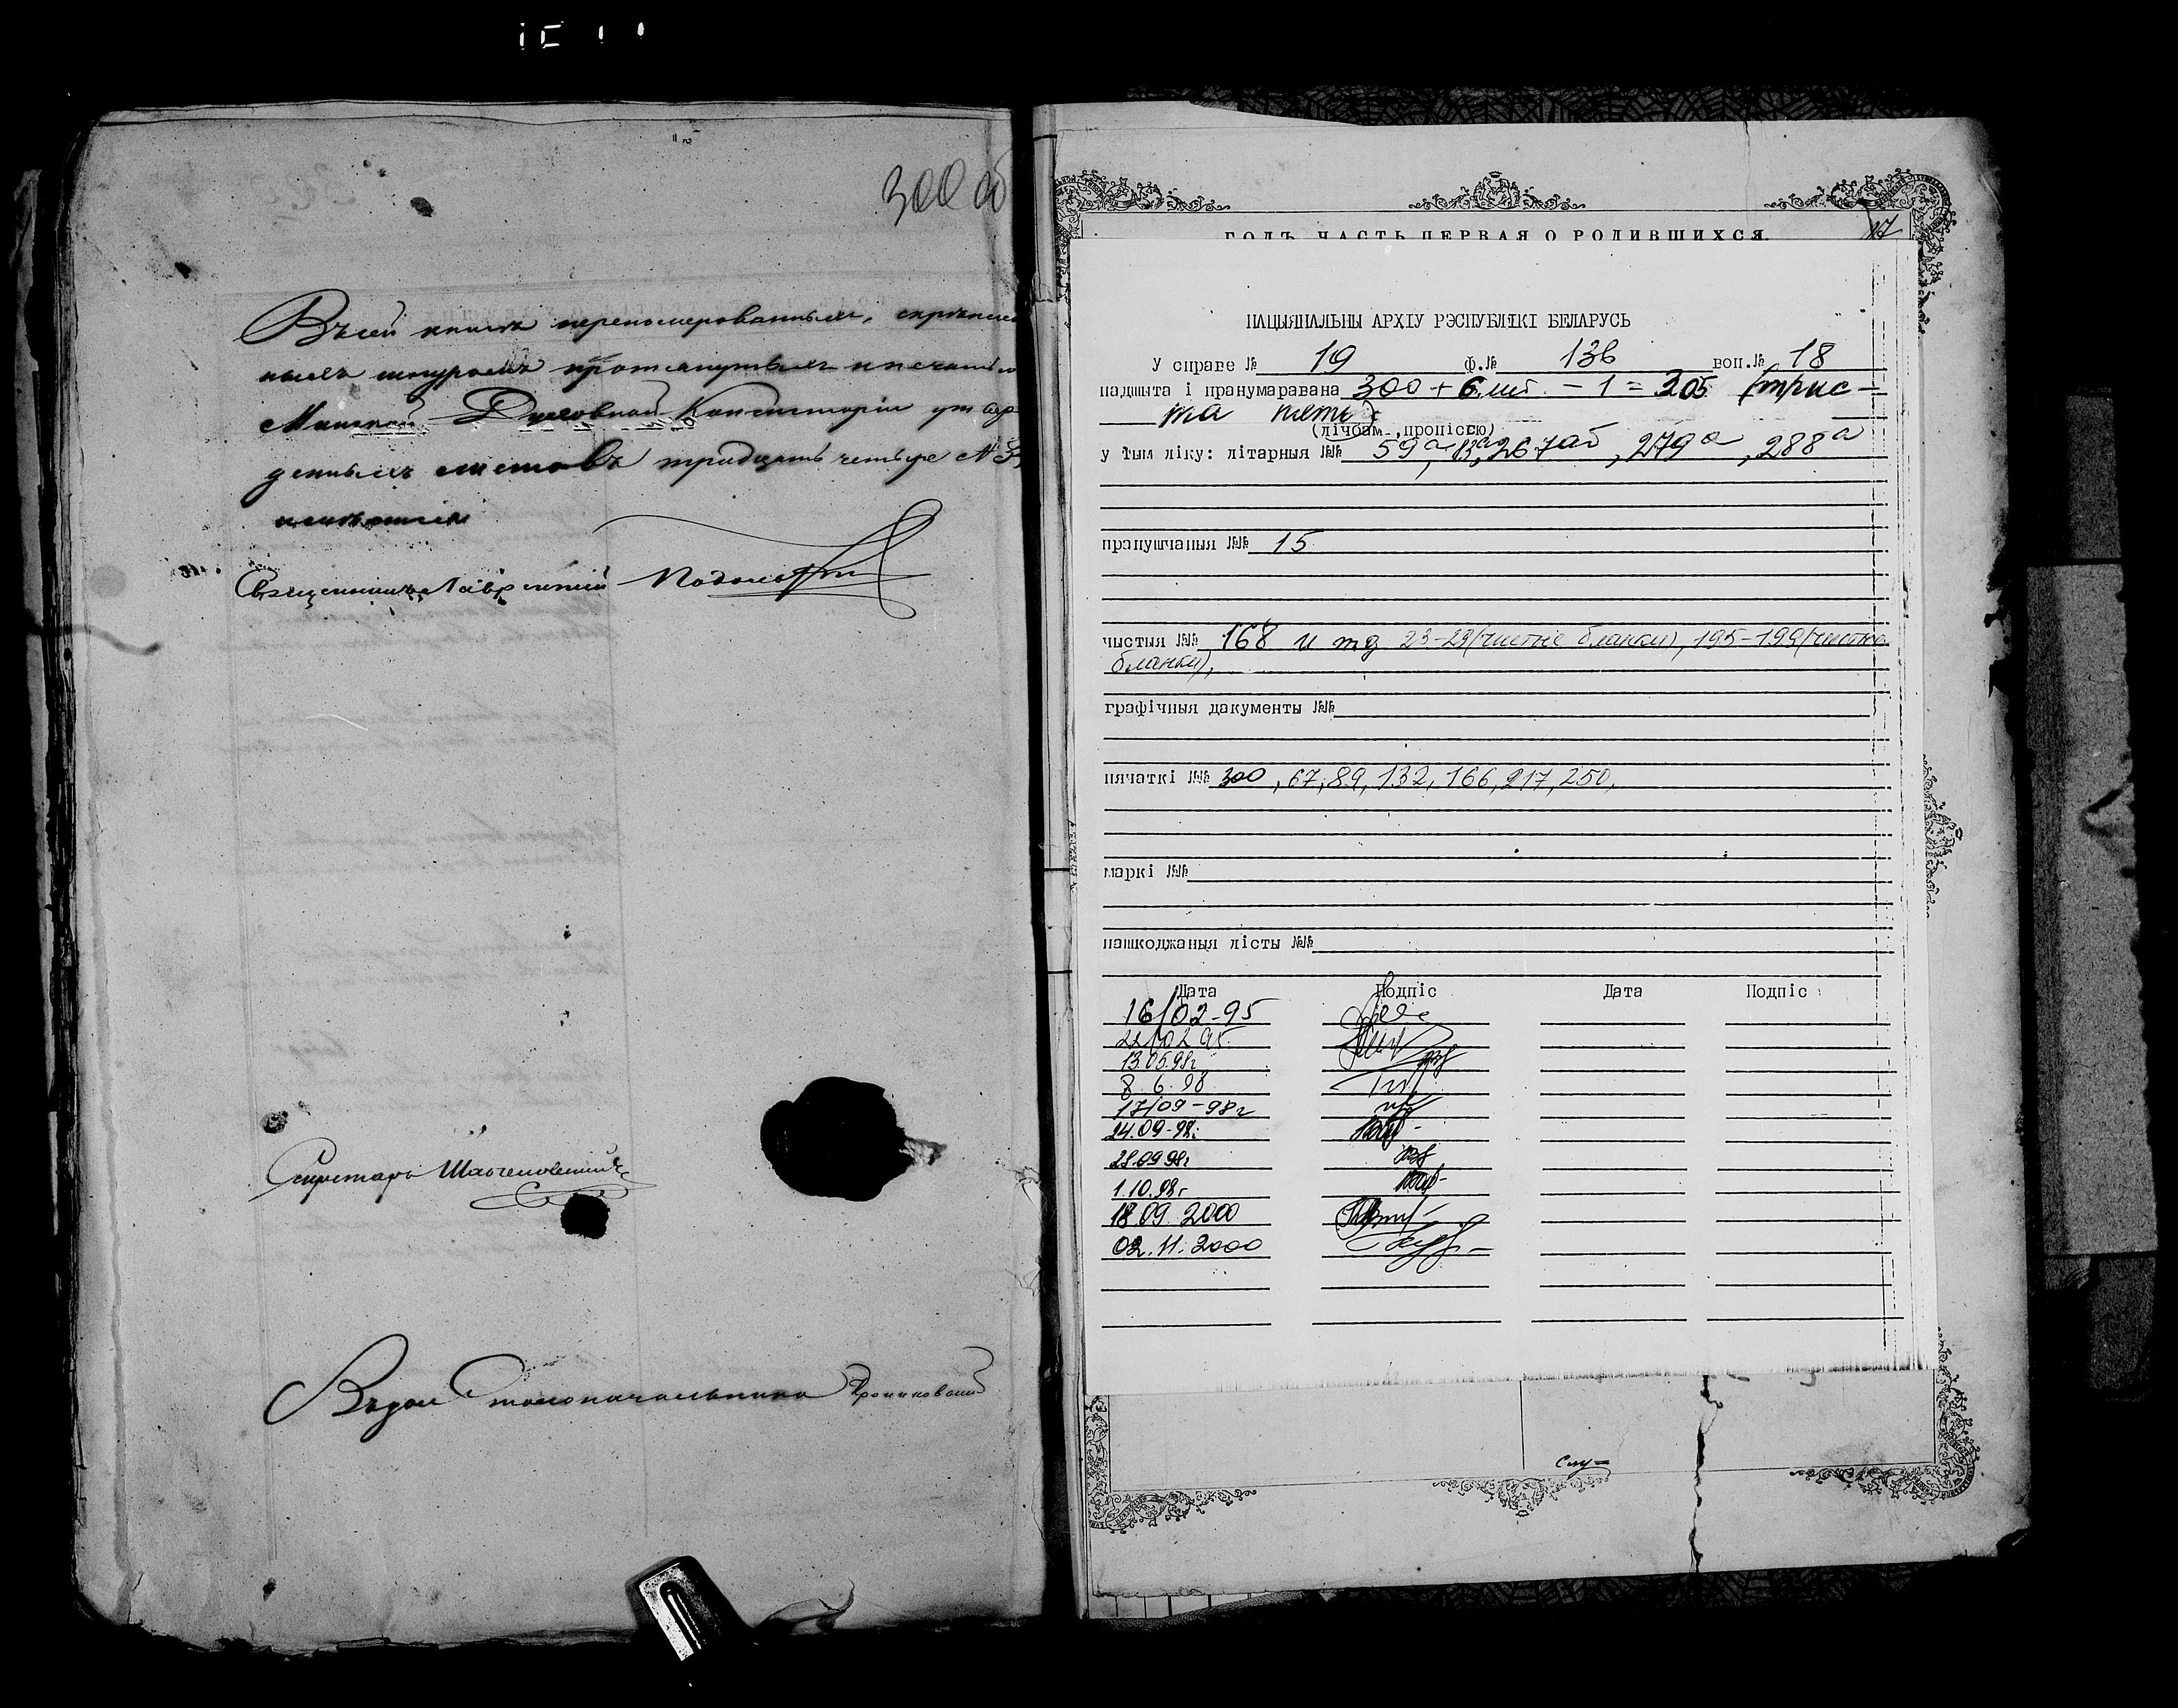 300 об
Въ сей книгѣ перенумерованныхъ, скрѣплен
ныхъ шнуромъ протянутыхъ и печатью
Минской Духовной Консисторіи утвер
денныхъ листовъ тридцать четыре № 3
Священникъ Лаврентій
Секретарь
Въ дол. Столоначальника
ГОДЪ ЧАСТЬ ПЕРВАЯ О РОДИВШИХСЯ. 17
НАЦЫЯНАЛЬНЫ АРХІУ РЭСПУБЛІКІ БЕЛАРУСЬ
У справе № 19 ф.№ 136 воп.№ 18
падшыта і пранумаравана 300 + 6 лит. - 1 = 305 (трис-
та пять)
(лічбам, пропіссю)
у тым ліку: літарныя №№ 59а, 83а, 267аб, 279а, 288а
прапушчаныя №№ 15
чыстыя №№ 168 и тд 23-29 (чистые бланки), 195-199 (чистые
бланки),
графічныя дакументы №№
пячаткі №№ 300, 67, 89, 132, 166, 217, 250,
маркі №№
пашкоджаныя лісты №№
Дата Подпіс Дата Подпіс
16/02-95
22/02 95
13.05.98г
8. 6. 98
17/09-98г
24.09-98г
28.09 98г
1.10.98г
18.09. 2000
02. 11. 2000
Слу=